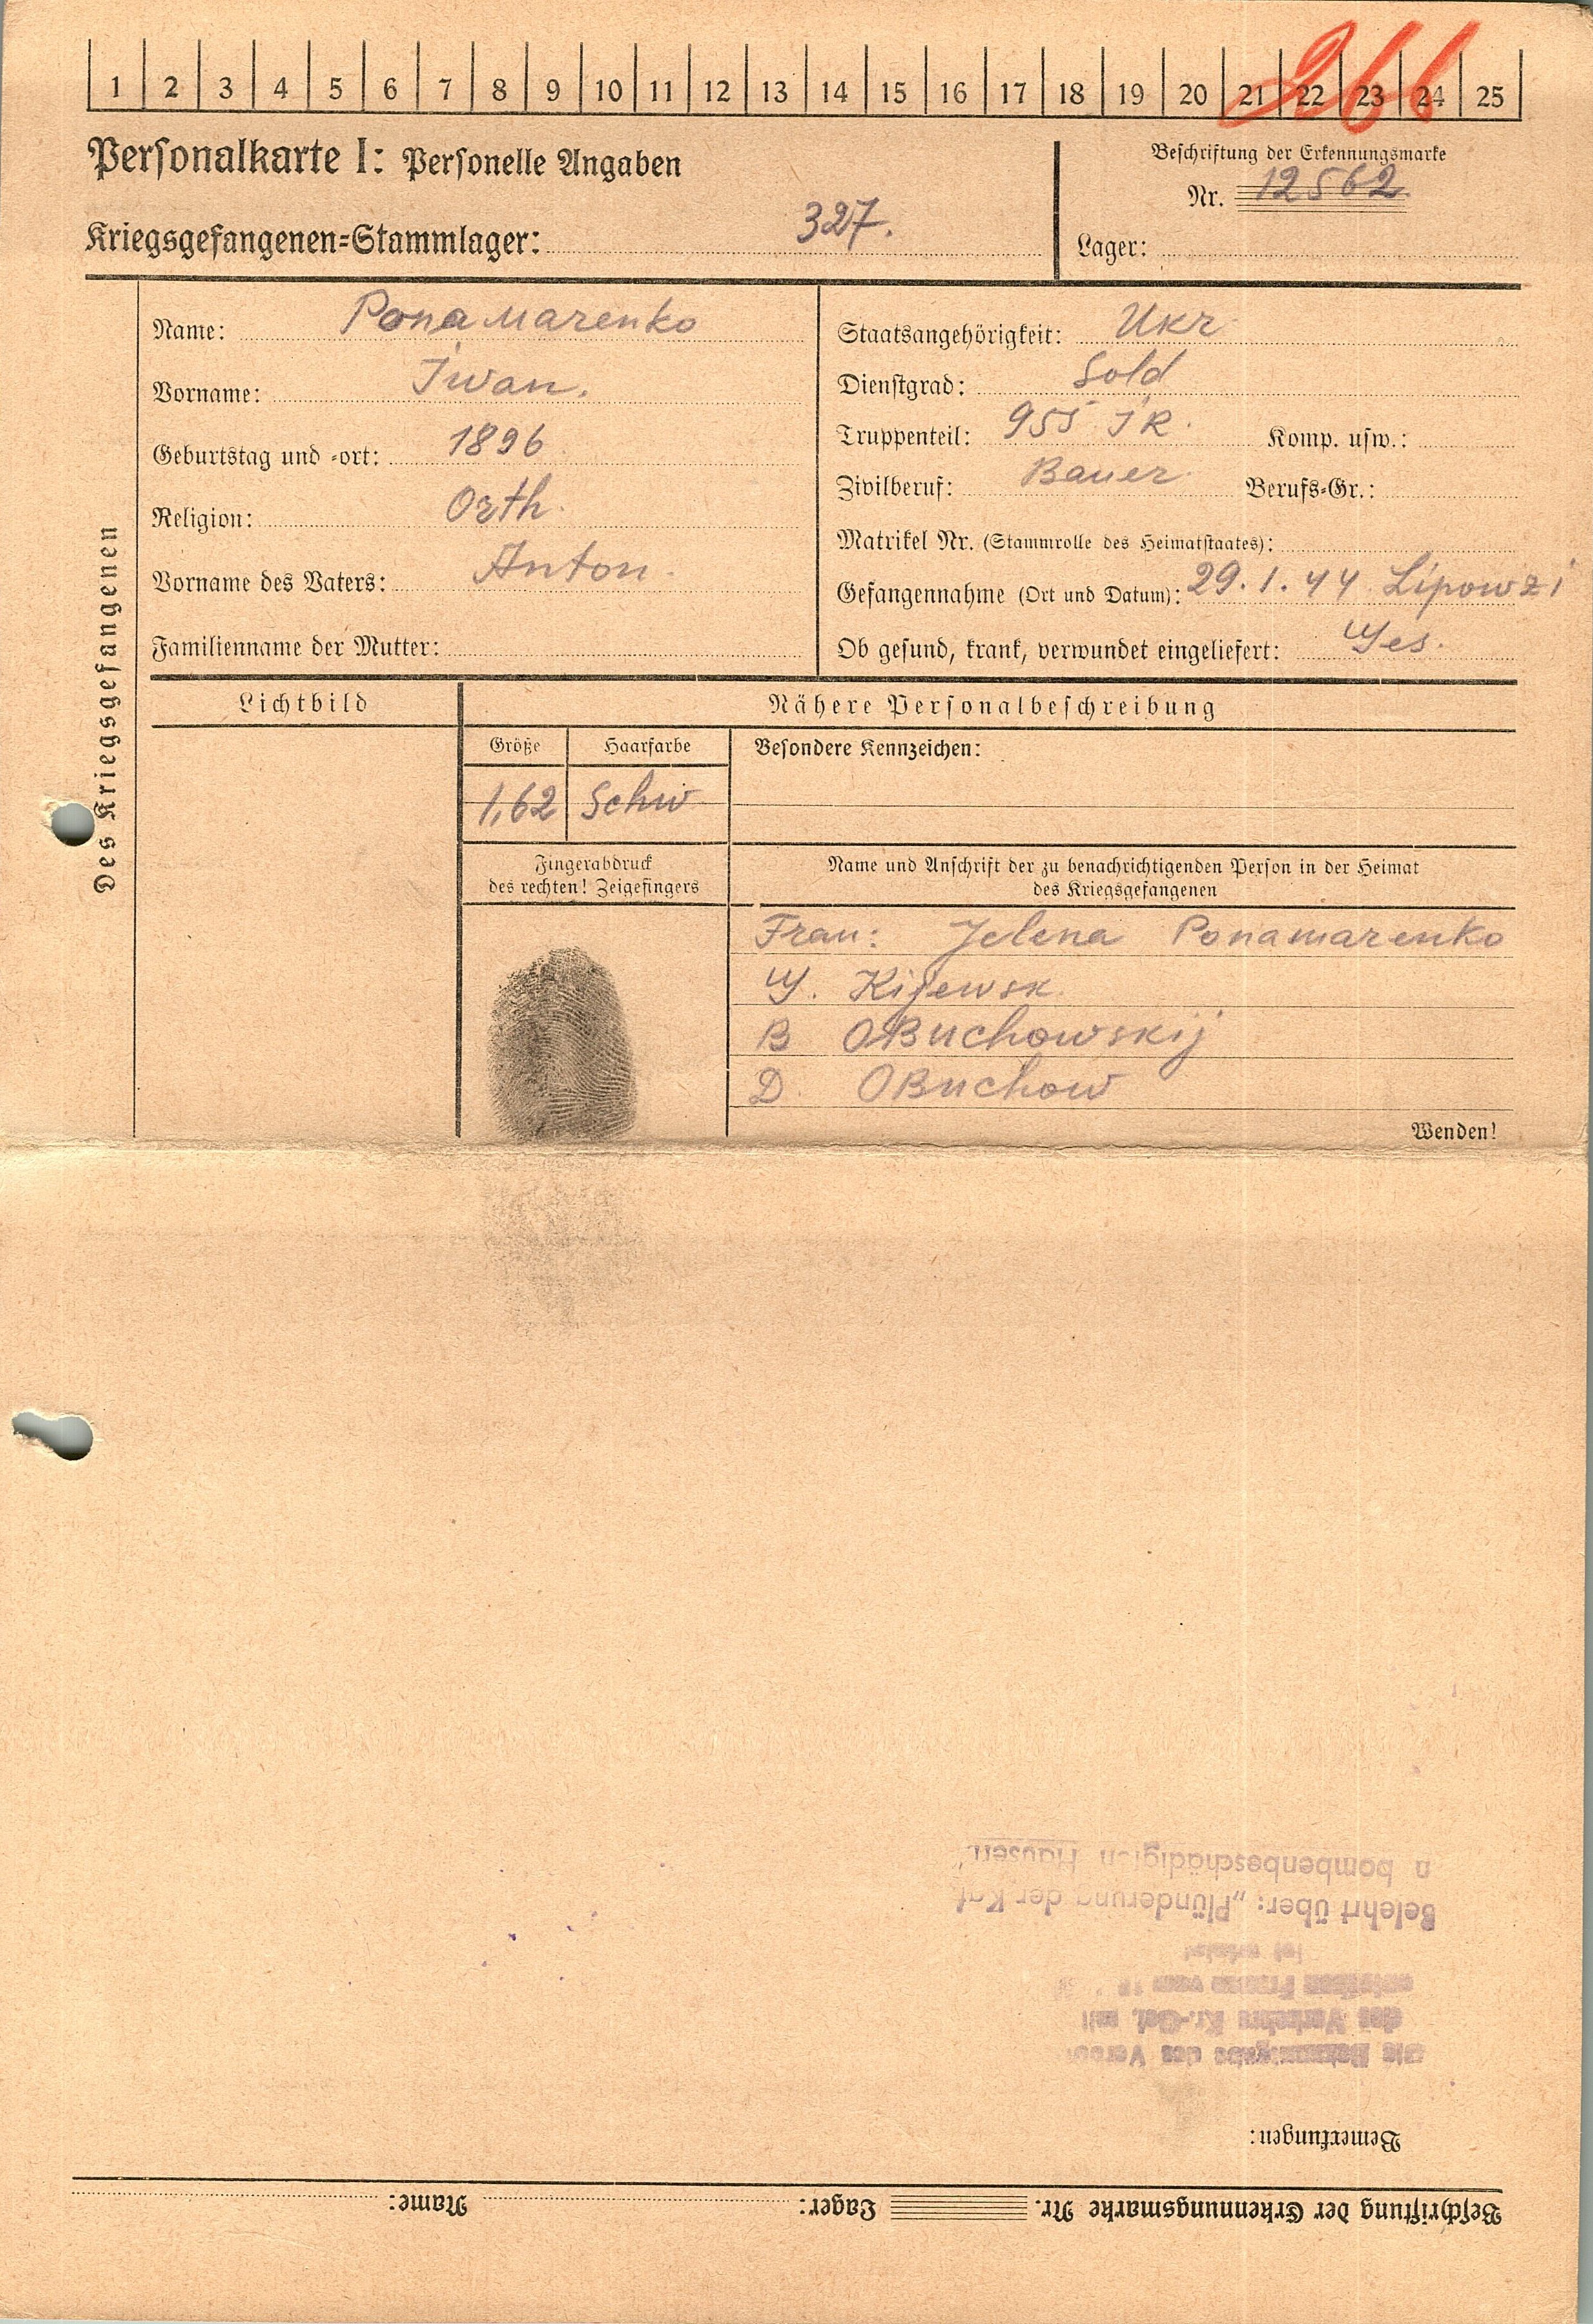 266
1 2 3 4 5 6 7 8 9 10 11 12 13 14 15 16 17 18 19 20 21 22 23 24 25
Personalkarte I: Personelle Angaben
Beschriftung der Erkennungsmarke
Nr. 12562
Kriegsgefangenen-Stammlager: 327.
Lager:
Des Kriegsgefangenen
Name: Ponamarenko
Vorname: Iwan.
Geburtstag und -ort: 1896
Religion: Orth.
Vorname des Vaters: Anton.
Familienname der Mutter:
Staatsangehörigkeit: Ukr
Dienstgrad: Sold
Truppenteil: 955 IR. Komp. usw.:
Zivilberuf: Bauer. Berufs-Gr.:
Matrikel Nr. (Stammrolle des Heimatstaates):
Gefangennahme (Ort und Datum): 29.1.44 Lipowzi
Ob gesund, krank, verwundet eingeliefert: Ges.
Lichtbild
Nähere Personalbeschreibung
Größe Haarfarbe Besondere Kennzeichen:
1,62 Schw
Fingerabdruck
des rechten! Zeigefingers
Name und Anschrift der zu benachrichtigenden Person in der Heimat
des Kriegsgefangenen
Frau: Jelena Ponamarenko
G. Kijewsk
B OBuchowskij
D. OBuchow
Wenden!
Beschriftung der Erkennungsmarke Nr. Lager: Name:
Bemerkungen:
des Verkehrs Kr.-Gef. mit
Belehrt über: „Plünderung der Kgf.
n bombenbeschädigten Häusern"